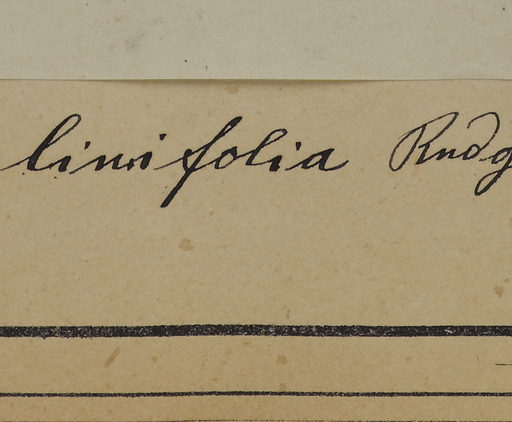 linifolia Rudg